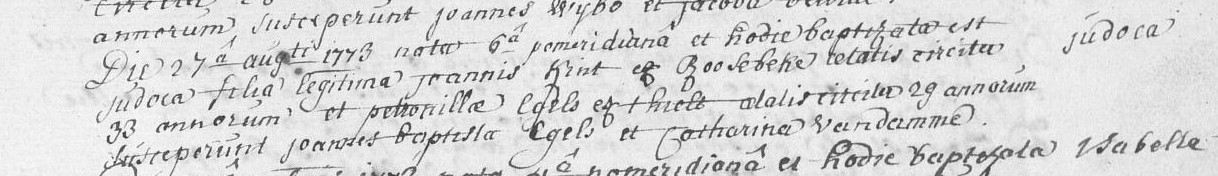 annorum susceperunt joannes Wybo et jacoba
Die 27â augti 1773 nata 6â pomeridianâ et hodie baptizata est
judoca filia legitima joannis Kint ex Roosebeke aetatis circiter judoca
33 annorum et petronillae Egels ex thielt aetatis circiter 29 annorum
susceperunt joannes baptista Egels et Catharina Vandamme.
pomeridianâ et hodie baptizata Isabelle